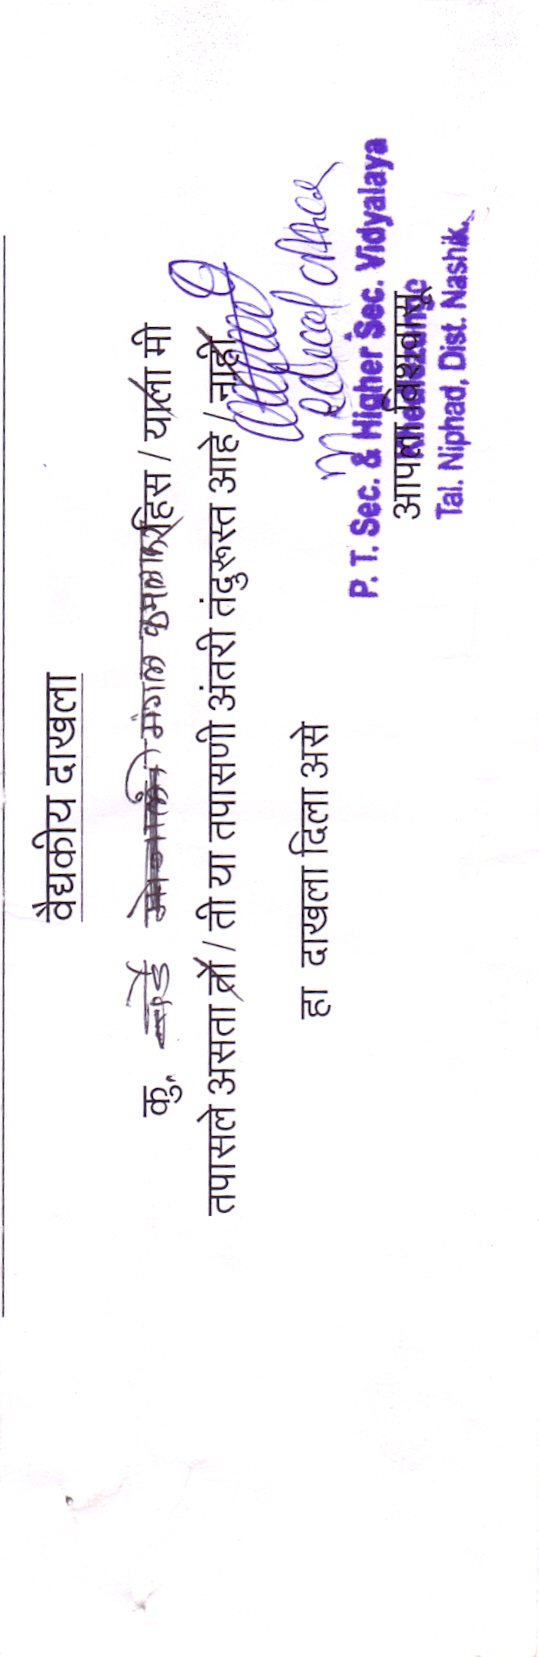 वैद्यकीय दाखला
कु. मंगळ हिस / याला मी
तपासले असता तो / ती या तपासणी अंतरी तंदुरुस्त आहे / नाही
हा दाखला दिला असे
Medical officer
P. T. Sec. & Higher Sec. Vidyalaya
आपला विश्वासू
Tal. Niphad, Dist. Nashik.